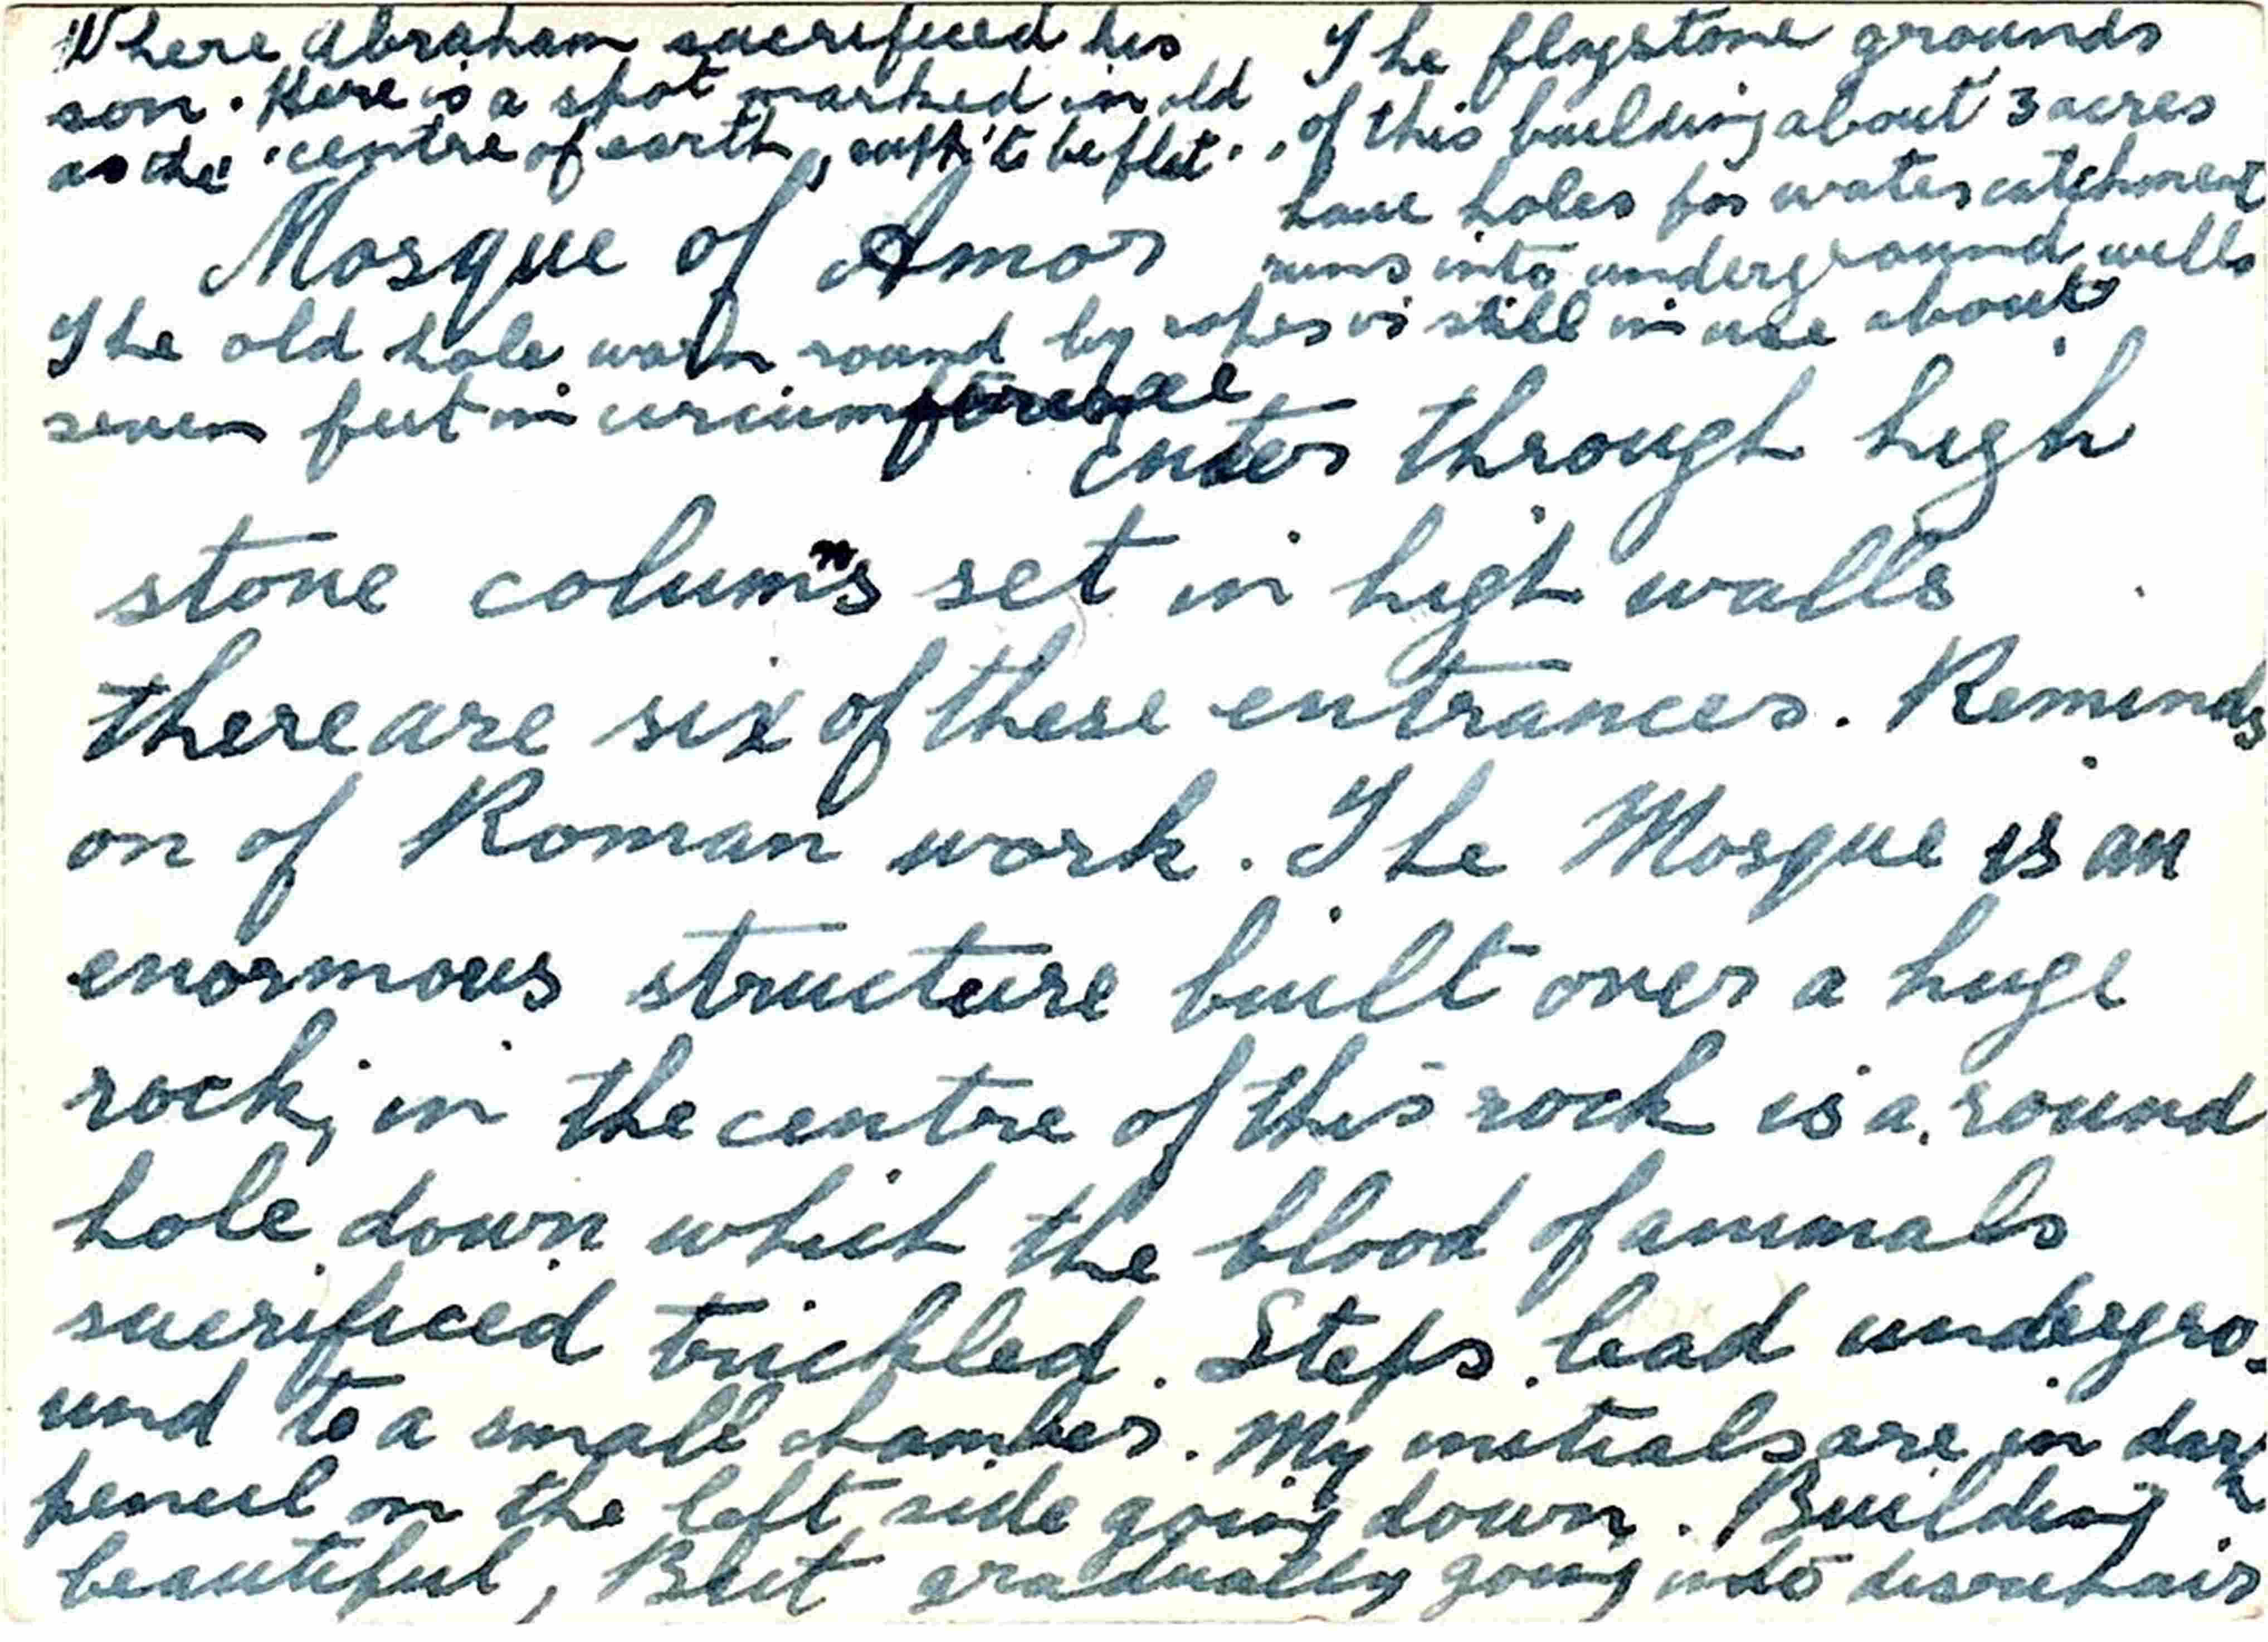 Where Abraham sacrificed his
son. Here is a spot marked in old
as the 'centre of earth, to be flat.
The flagstone grounds
of this building about 3 acres
have holes for water catchment
runs into underground wells
Mosque of Amor
The old hole worn round by ropes is still in use about
seven feet in circumference
Enter through high
stone columns set in high walls
there are six of these entrances. Reminds
on of Roman work. The Mosque is an
enormous structure built over a huge
rock, in the centre of this rock is a round
hole down which the blood of animals
sacrificed trickled. Steps lead undergro-
und to a small chamber. My initials are in dark
pencil on the left side going down. Building
beautiful, But gradually going into disrepair